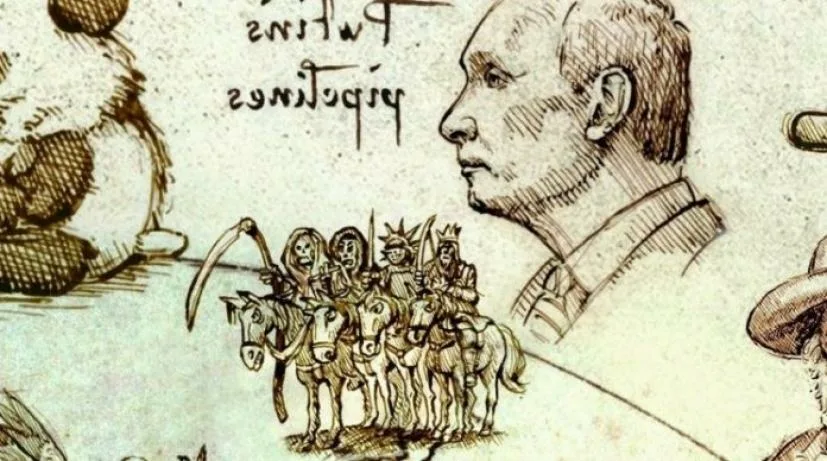 Putins
pipelines